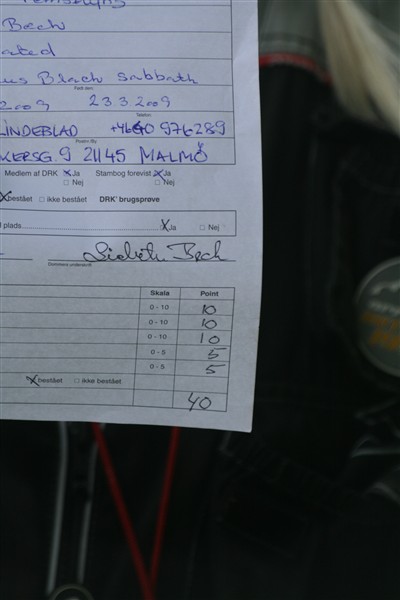 Bech
ated
us Black Sabbath
Født den:
2009 23.3 2009
Telefon
LINDEBLAD +4640 976289
Postnr. By
KERSG. 9 21145 MALMÖ
Medlem af DRK X Ja Stambog forevist X Ja
Nej Nej
X bestået ikke bestået DRK' brugsprøve
plads X Ja Nej
Lisbeth Bech
Dommers underskrift
Skala Point
0 - 10 10
0 - 10 10
0 - 10 10
0 - 5 5
0 - 5 5
X bestået ikke bestået
40